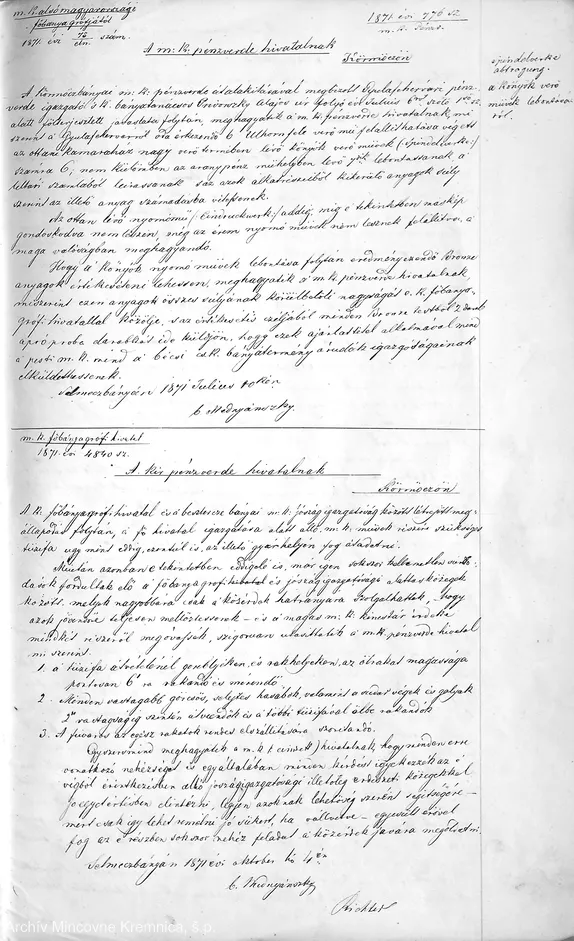 m. k. alsómagyarországi
főbánya grófjától
1871. évi 72/eln. szám.
1871 évi 776 sz.
A m. k. pénzverde hivatalnak
Körmöczön
Spindelwerke
abtragung.
a könyök verő
művek lebontásá
ról.
A Körmöczbányai m. k. pénzverde átalakításával megbízott Gyulafehérvári pénz-
verde igazgató s k. bányatanácsos Alajos úr folyó évi Julius 6ról szóló
alatt fölterjesztett javaslata folytán, meghagyatik a m. k. pénzverde hivatalnak, mi
szerint a Gyulafehérvárról oda érkezendő 6 Uhlhornféle verő mű felállíthatása végett
az ottani kamaraház nagy verő termében lévő könyök verő művek (Spindelwerke)
száma 6, nem különben az aranypénz műhelyben lévő lebontassanak a
leltári számlából leirassanak s az azok alkatrészeiből kikerülő anyagok súly
szerint az illető anyag számadásba vétessenek.
Az ottan lévő nyomómű addig, míg e tekintetben máskép
gondoskodva nem leszen, még az érem nyomó művek nem lesznek felállítva, a
maga valóságban meghagyandó.
Hogy a könyök nyomó művek lebontása folytán eredményezendő Bronze
anyagok értékesíteni lehessen, meghagyatik a m. k. pénzverde hivatalnak
miszerint ezen anyagok összes súlyának körülbelöli nagyságát a k. főbánya
grófi hivatallal közölje, s az értékesítés czéljából minden Bronze testből 2 darab
apró próba darabkát ide küldjön, hogy ezek ajánlattétel alkalmával mind
a pesti m. k. mind a bécsi cs. k. bányatermény árudák igazgatóságainak
elküldethessenek.
Selmeczbányán 1871 Julius 10kén.
b Mednyánszky.
m. k. főbányagrófi hivatal
1871. évi 4840 sz.
A kir pénzverde hivatalnak
Körmöczön
A k. főbányagrófi hivatal és a besztercze bányai m. k. jószág igazgatóság között létrejött meg-
állapodás folytán, a fő hivatal igazgatása alatt álló m. k. művek részére szükséges
tüzifa úgy mint eddig, ezentúl is, az illető gyárhelyen fog átadatni.
Miután azonban e tekintetben eddigelé is, már igen sokszor kellemetlen súrló-
dások fordultak elő a főbányagrófi hivatal és jószágigazgatósági alattas közegek
között, melyek nagyobbára csak a közérdek hátrányára szolgálhattak, hogy
azok jövendőre teljesen mellőztessenek – és a magas m. k. kincstár érdeke
mindkét részéről megóvassék, szigorúan utasíttatik a m. k. pénzverde hivatal
miszerint
1. a tüzifa átvételénél gondoljéken, és rakhelyeken, az ölrakat magassága
pontosan 6' ra rakandó és mérendő.
2. Minden vastagabb görcsös, selejtes hasábok, valamint a rudar végek és galyak
2" vastagságig szintén átveendők és a többi tüzifával ölbe rakandók
3. A fuvaros az egész rakatok rendes előállítására szorítandó.
Egyszersmind meghagyatik a m. k. t. czímzett hivatalnak, hogy minden erre
vonatkozó nehézséget és egyáltalában minden kérdést igyekezzék az ő
végből érintkezésben álló jószágigazgatósági illetőleg erdészeti közegekkel
jó egyetértésben elintézni, legyen azoknak lehetőség szerint segítségére –
mert csak így lehet remélni jó sikert, ha vállvetve – egyesült erővel
fog az e részben sokszor nehéz feladat a közérdek javára megoldatni.
Selmeczbányán 1871 évi október hó 4én
b. Mednyánszky
Richter
Archív Mincovne Kremnica, š.p.